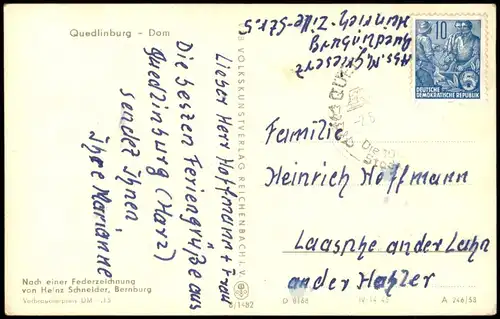 Quedlinburg - Dom
Lieber Herr Hoffmann + Frau
Die besten Feriengrüße aus
Quedlinburg (Harz)
sendet Ihnen
Ihre Marianne
Nach einer Federzeichnung
von Heinz Schneider, Bernburg
Verbraucherpreis DM
VOLKSKUNSTVERLAG REICHENBACH i. V.
8/1482
Abs. M.
Quedlinburg
Heinrich-Zille-Str. 5
10
5
DEUTSCHE
DEMOKRATISCHE REPUBLIK
Familie
Heinrich Hoffmann
Laasphe an der Lahn
an der
IV-14-45
A 246/58